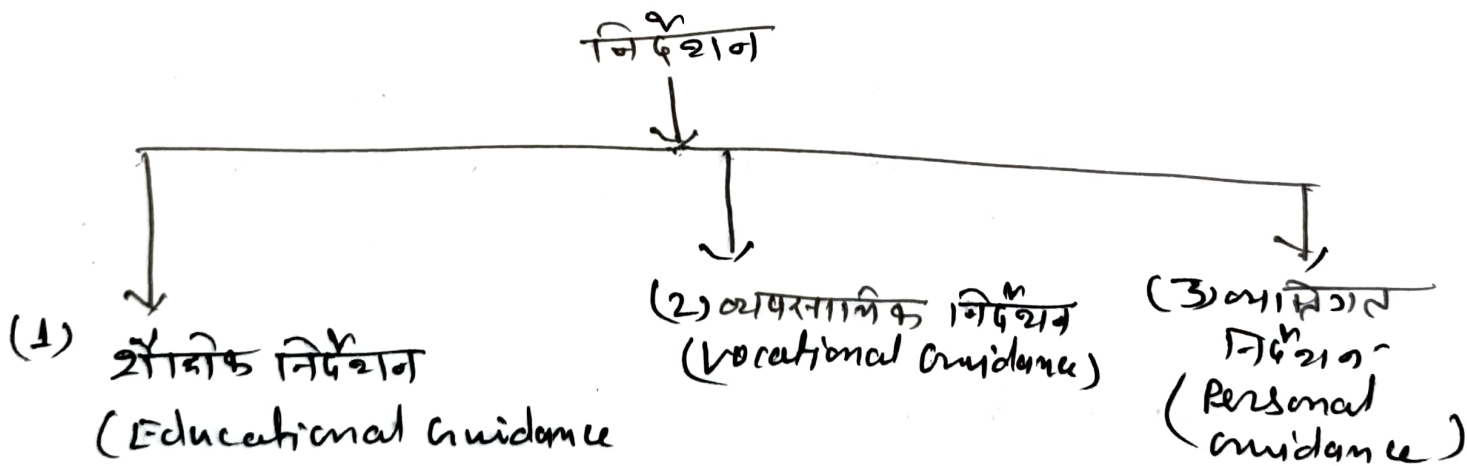 निर्देशन
(1) शैक्षिक निर्देशन
(Educational Guidance
(2) व्यवसायिक निर्देशन
(Vocational Guidance)
(3) व्यक्तिगत
निर्देशन
(Personal
Guidance)